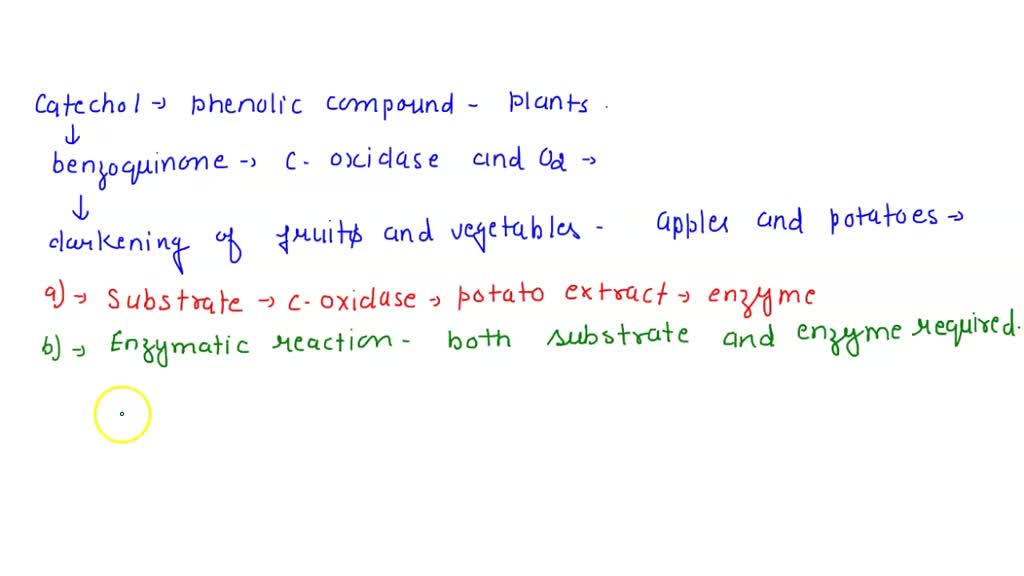 Catechol → phenolic compound - plants .
↓
benzoquinone → c- oxidase and O2 →
↓
darkening of fruits and vegetables - apples and potatoes →
a) → Substrate → c-oxidase → potato extract → enzyme
b) → Enzymatic reaction - both substrate and enzyme required.